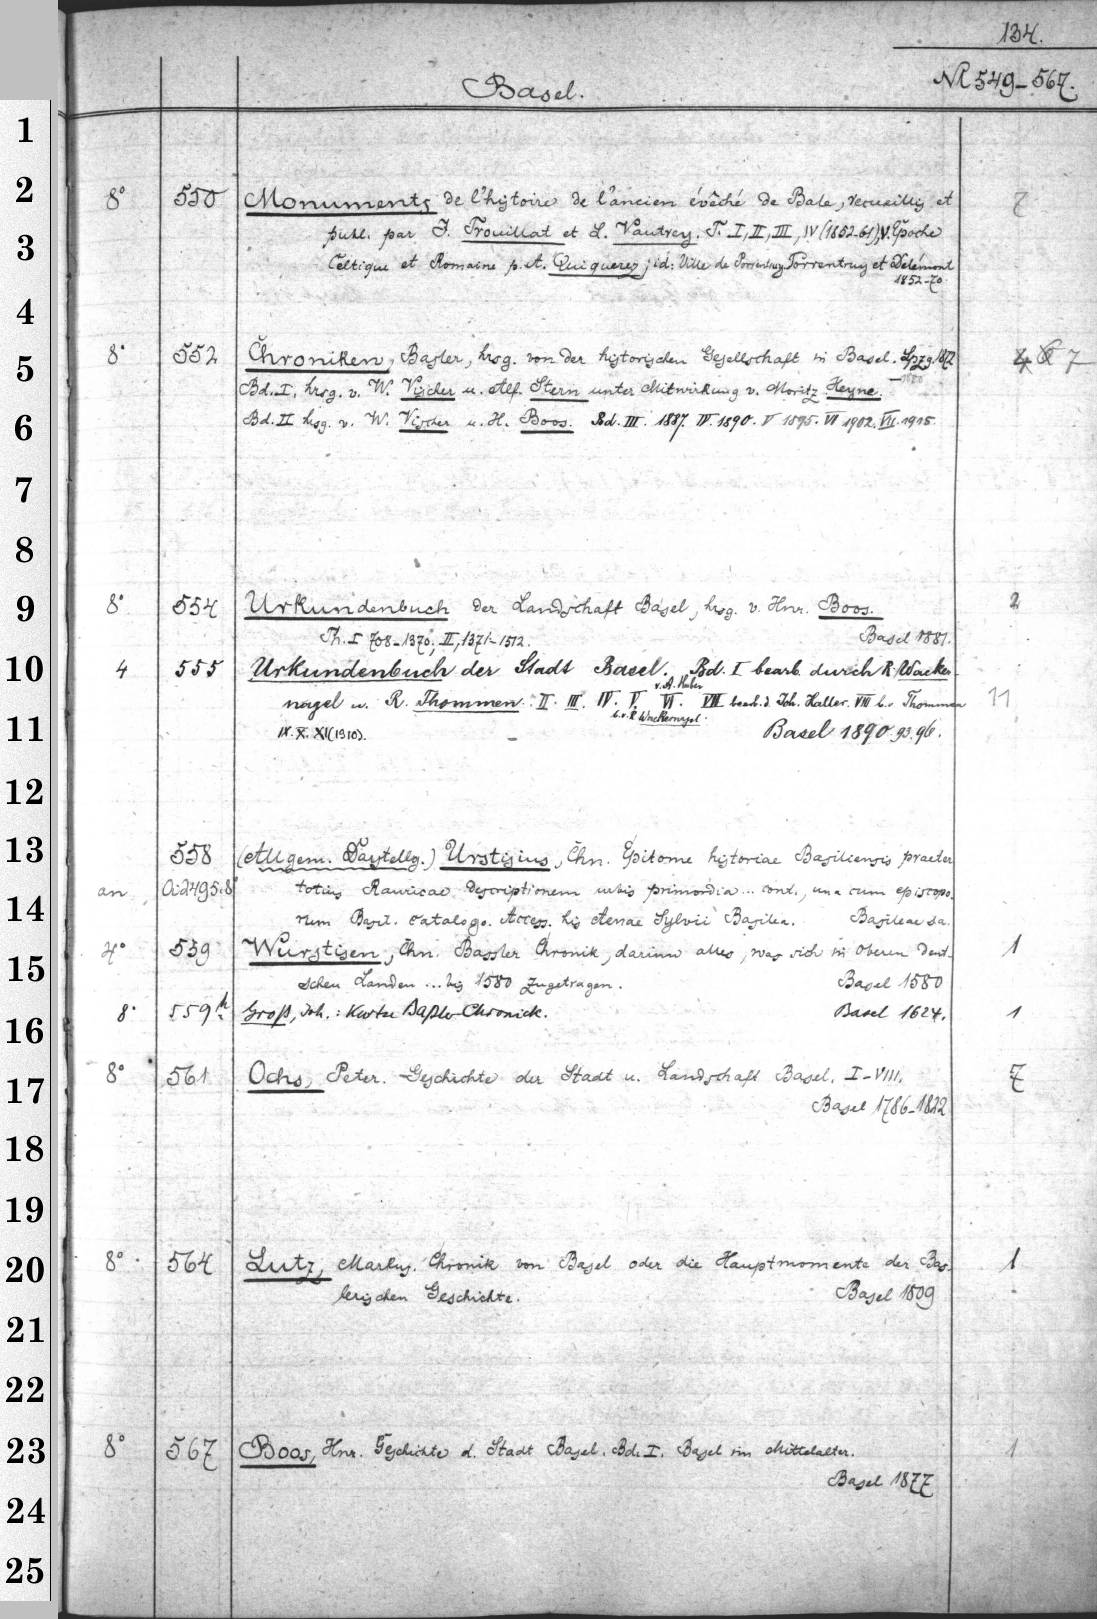 134.
Basel.
No 549-567.
1
2
8° 550 Monuments de l'histoire de l'ancien évêché de Bale, recueillis et 7
3
publ. par J. Trouillat et L. Vautrey. T. I, II, III, IV (1852-61), V. Epoche
Celtique et Romaine p. A. Quiquerez, id: Ville de Porrentruy Porrentruy et Delémont
1852-70
4
8° 552 Chroniken, Basler, hrsg. von der historischen Gesellschaft in Basel. Lpzg 1872 7
5
-1880
Bd. I, hrsg. v. W. Vischer u. Alf. Stern unter Mitwirkung v. Moritz Heyne.
6
Bd. II hrsg. v. W. Vischer u. H. Boos. Bd. III. 1887. IV. 1890. V 1895. VI 1902. VII. 1915.
7
8
9
8° 554 Urkundenbuch der Landschaft Basel, hrsg. v. Hnr. Boos. 2
Th. I 708-1370; II, 1371-1512. Basel 1881.
10
4 555 Urkundenbuch der Stadt Basel. Bd. I bearb. durch R. Wacker-
v. A. Huber
nagel u. R. Thommen. II. III. IV. V. VI. VII bearb. d. Joh. Haller. VIII b. v. Thommen 11
b. v. R. Wackernagel.
11
IX. X. XI (1910). Basel 1890. 93. 96.
12
13
558 (Allgem. Darstellg.) Urstisius, Chn. Epitome historiae Basiliensis praeter
an Oi 2495.8° totius Rauricae descriptionem urbis primordia... cont., una cum episcopo-
14
rum Basil. catalogo. Access. his Aenae Sylvii Basilea. Basileae s.a.
4° 559 Wurstisen, Chn. Bassler Chronik, darinn alles, was sich in Oberen Deut- 1
15
schen Landen ... bis 1580 zugetragen. Basel 1580
16
8° 559h Groß, Joh.: Kurtze Baßler Chronick. Basel 1624. 1
8° 561 Ochs, Peter. Geschichte der Stadt u. Landschaft Basel. I-VIII. 7
17
Basel 1786-1822
18
19
20
8° 564 Lutz, Markus. Chronik von Basel oder die Hauptmomente der Bas- 1
lerischen Geschichte. Basel 1809
21
22
23
8° 567 Boos, Hnr. Geschichte d. Stadt Basel. Bd. I. Basel im Mittelalter. 1
Basel 1877
24
25